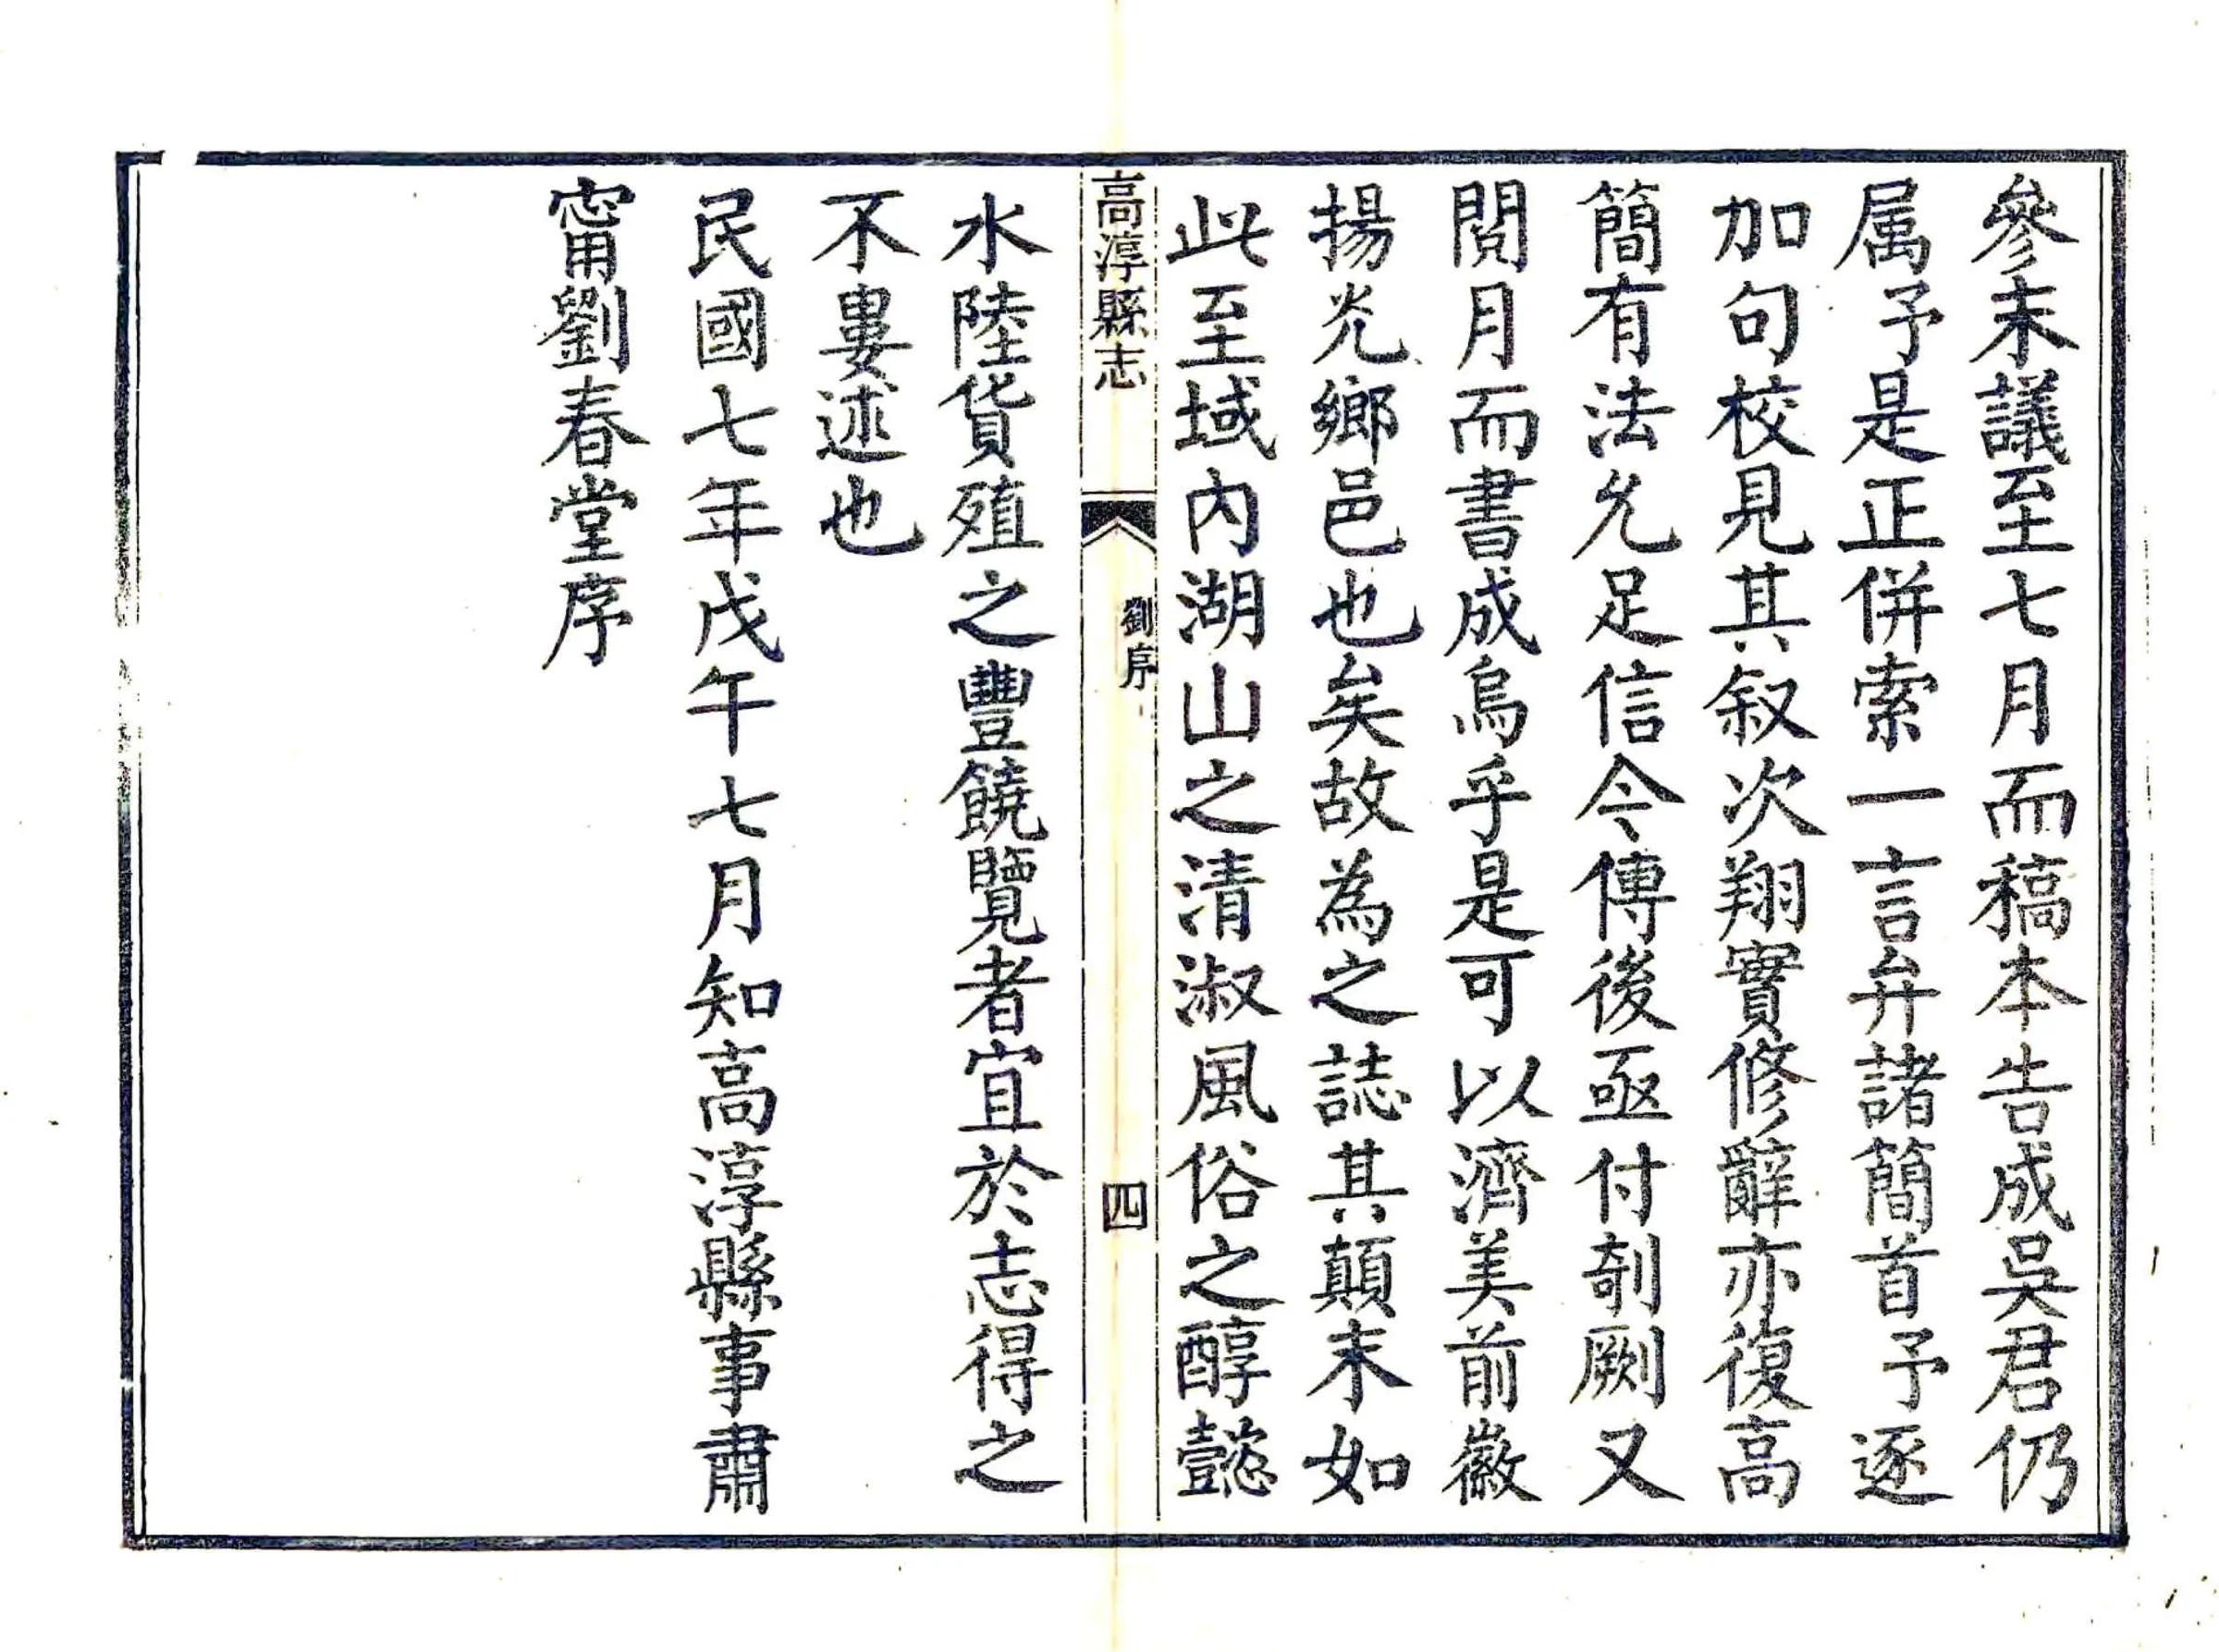 參末議至七月而稿本告成吳君仍
属予是正併索一言弁諸簡首予逐
加句校見其叙次翔實修辭亦復高
簡有法允足信今傳後亟付剞劂又
閱月而書成烏乎是可以濟美前徽
揚光鄉邑也矣故為之誌其顛末如
此至域內湖山之清淑風俗之醇懿
高淳縣志
劉序
四
水陸貨殖之豐饒覽者宜於志得之
不婁述也
民國七年戊午七月知高淳縣事肅
甯劉春堂序